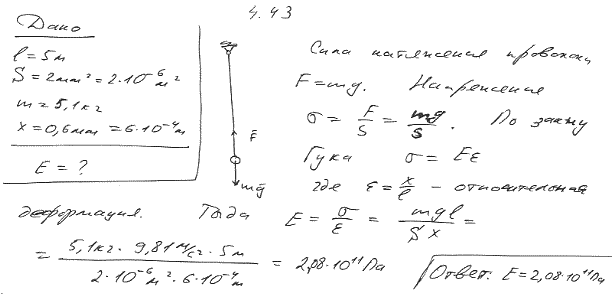 4.43
Дано
l = 5м
S = 2мм² = 2·10⁻⁶м²
m = 5,1кг
x = 0,6мм = 6·10⁻⁴м
E = ?
F̄
mḡ
Сила натяжения проволоки
F = mg. Напряжение
σ = F/S = mg/S. По закону
Гука σ = Eε
где ε = x/l – относительная
деформация. Тогда E = σ/ε = mgl/Sx =
= 5,1кг · 9,81м/с² · 5м / 2·10⁻⁶м² · 6·10⁻⁴м = 2,08·10¹¹Па
Ответ: E = 2,08·10¹¹Па